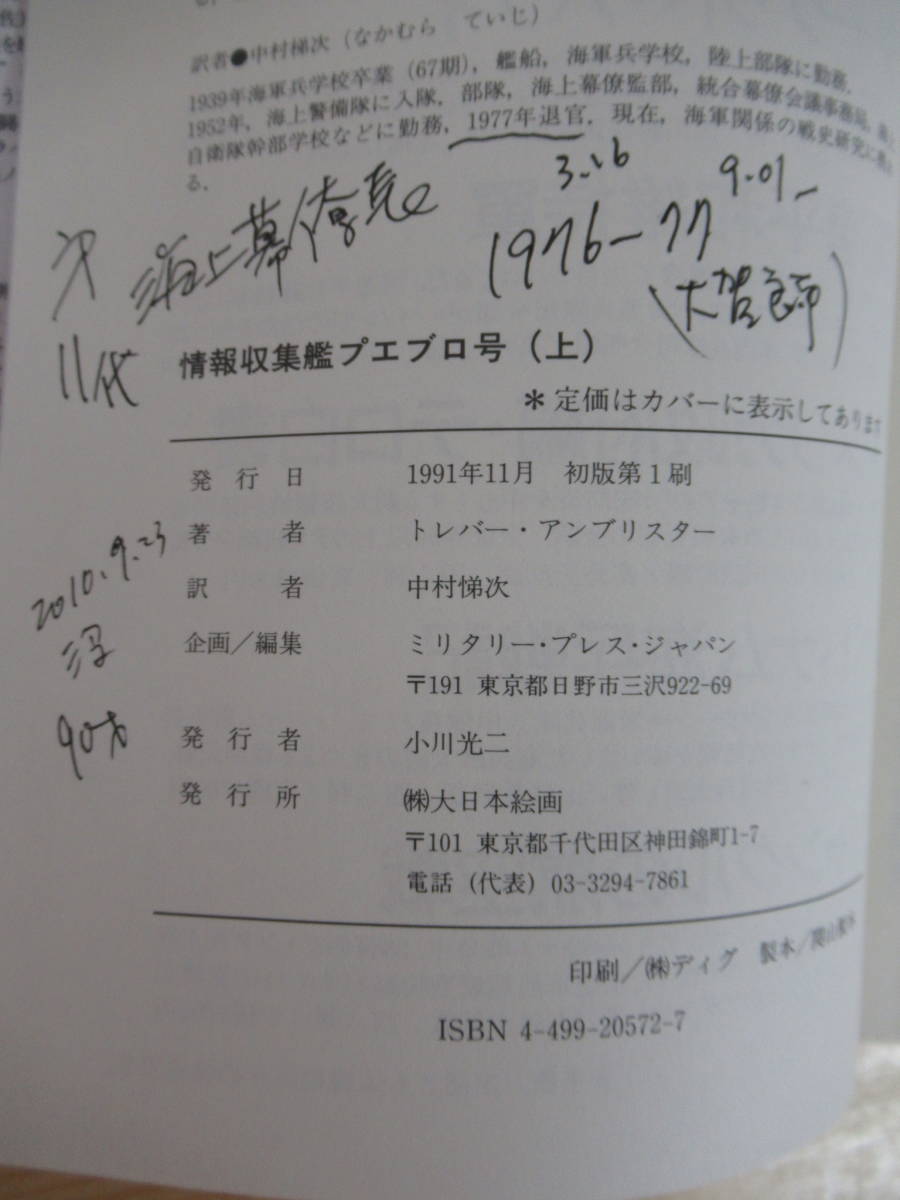 訳者●中村悌次（なかむら　ていじ）
1939年海軍兵学校卒業（67期），艦船，海軍兵学校，陸上部隊に勤務．
1952年，海上警備隊に入隊．部隊，海上幕僚監部，統合幕僚会議事務局，
自衛隊幹部学校などに勤務，1977年退官．現在，海軍関係の戦史研究に
る．
3.16
9.01
海上幕僚長
1976－77
11代
(大賀良平)
情報収集艦プエブロ号（上）
＊定価はカバーに表示してあります
発行日　1991年11月　初版第1刷
著者　トレバー・アンブリスター
訳者　中村悌次
企画／編集　ミリタリー・プレス・ジャパン
〒191 東京都日野市三沢922-69
発行者　小川光二
発行所　㈱大日本絵画
〒101 東京都千代田区神田錦町1-7
電話（代表）03-3294-7861
2010.9.23
90才
印刷／㈱ディグ　製本／関山製本
ISBN 4-499-20572-7